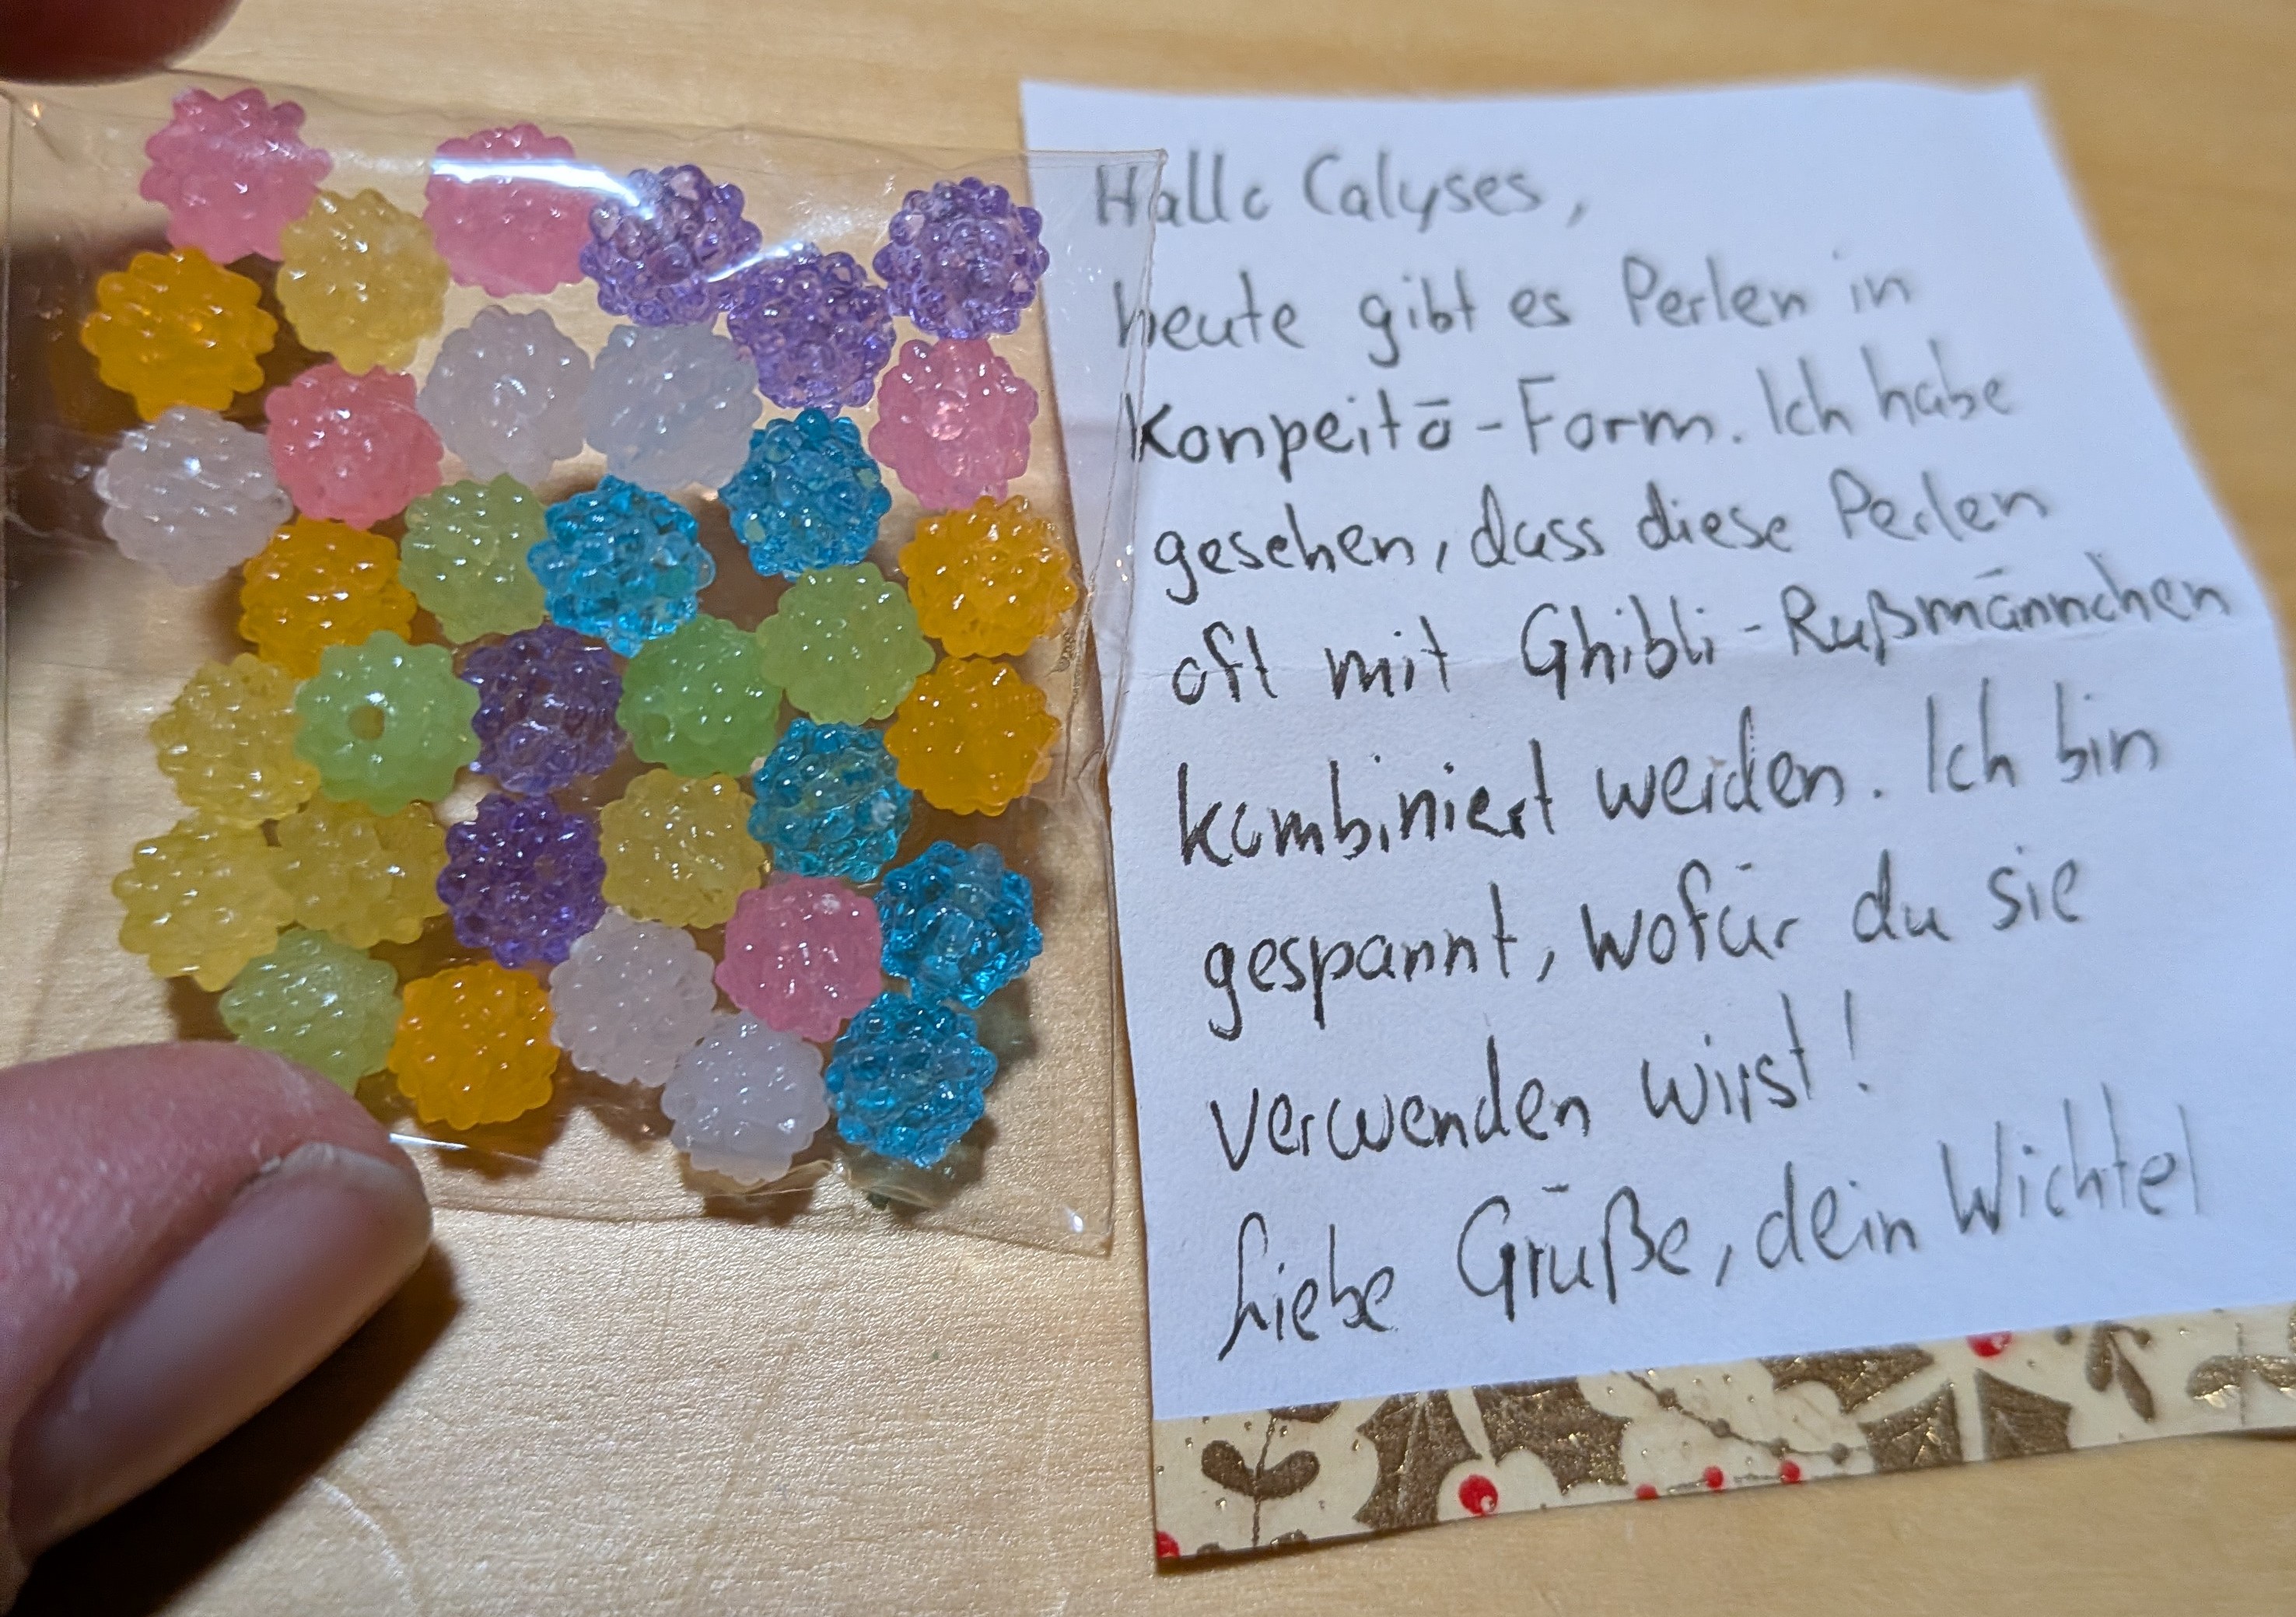 Hallo Calyses,
heute gibt es Perlen in
Konpeitō-Form. Ich habe
gesehen, dass diese Perlen
oft mit Ghibli-Rußmännchen
kombiniert werden. Ich bin
gespannt, wofür du sie
verwenden wirst!
Liebe Grüße, dein Wichtel